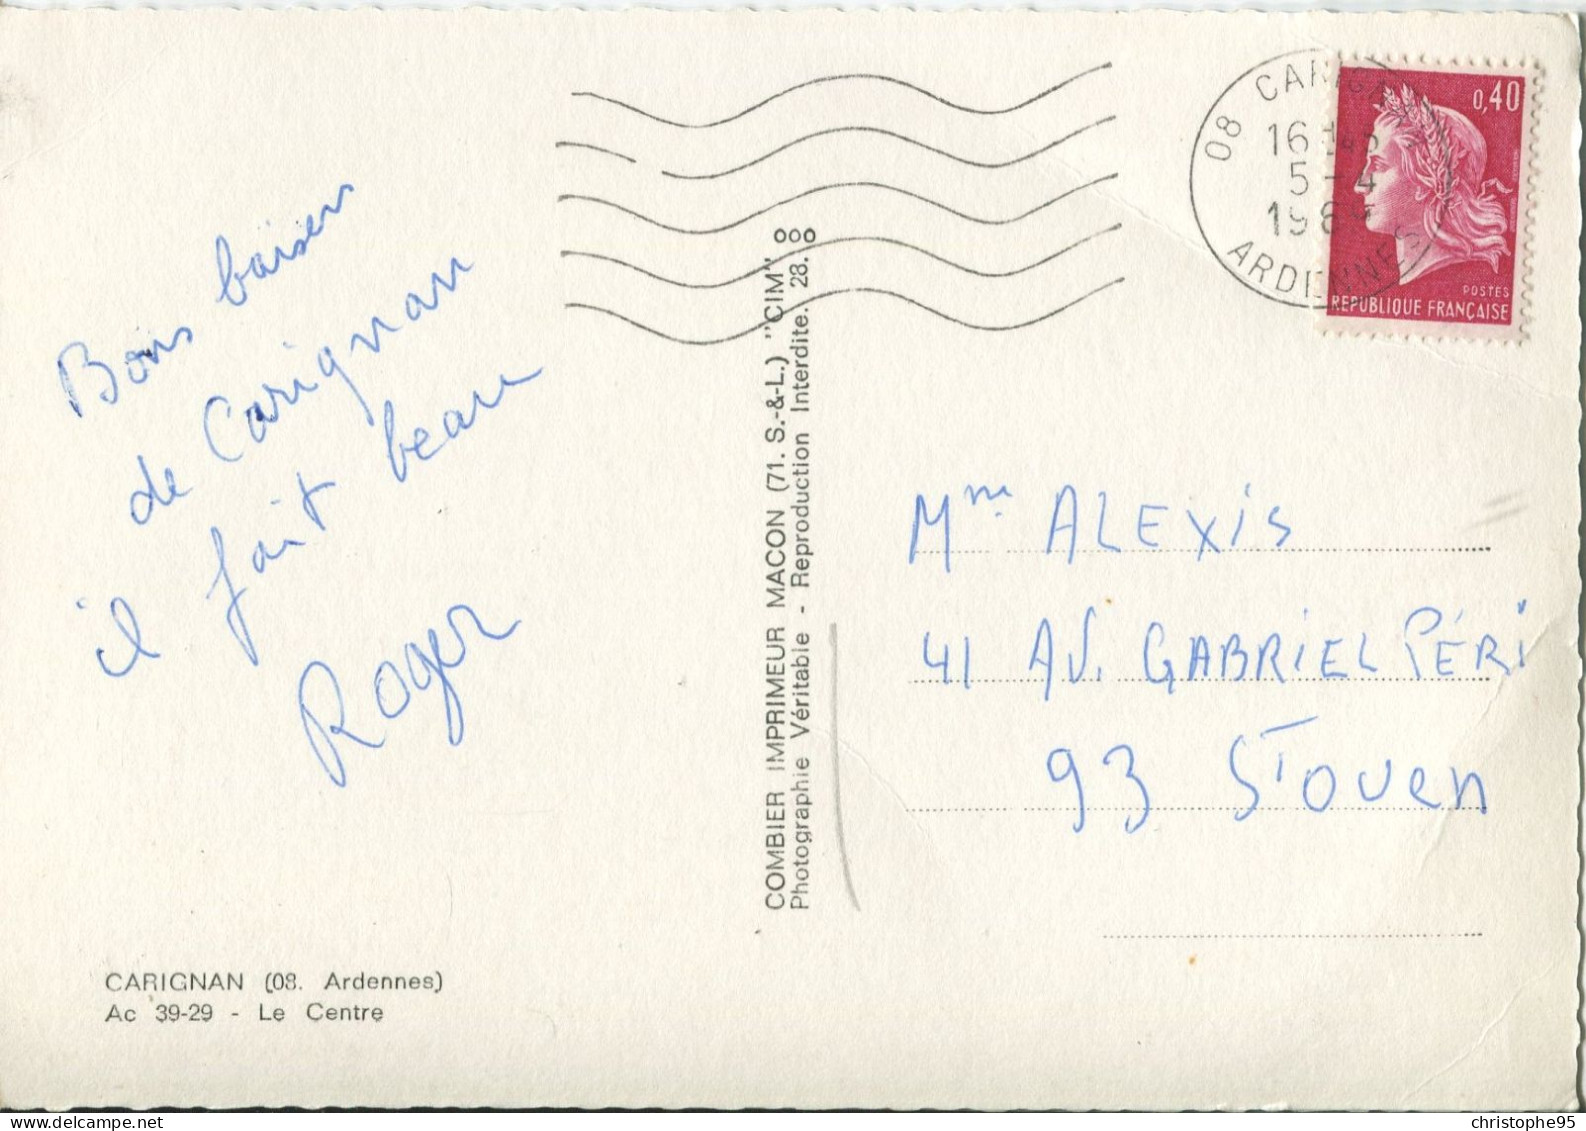 08 CARIGNAN
16 H45
5-4
1969
ARDENNES
0,40
POSTES
REPUBLIQUE FRANÇAISE
Bons baisers
de Carignan
il fait beau
Roger
COMBIER IMPRIMEUR MACON (71. S.-&-L.) "CIM"
Photographie Véritable - Reproduction Interdite. 28.
Mme ALEXIS
41 AV. GABRIEL PÉRI
93 ST OUEN
CARIGNAN (08. Ardennes)
Ac 39-29 - Le Centre
christophe95